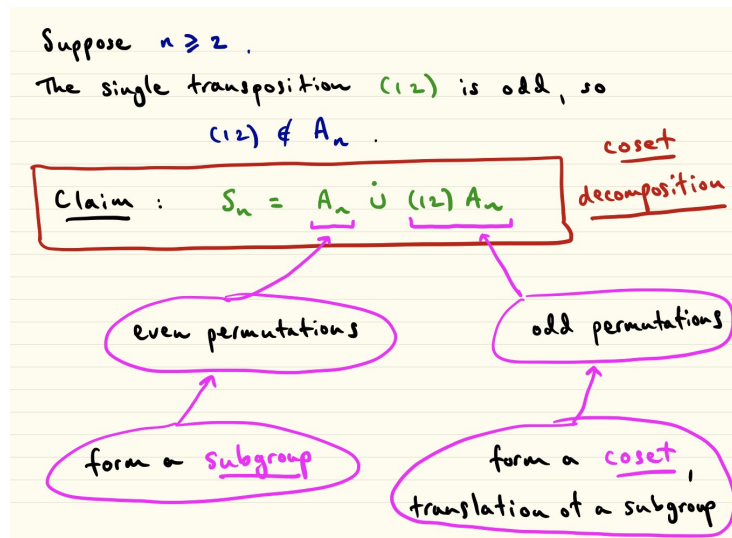 Suppose n ≥ 2.
The single transposition (12) is odd, so
(12) ∉ Aₙ.
coset
decomposition
Claim : Sₙ = Aₙ ∪̇ (12) Aₙ
even permutations
odd permutations
form a subgroup
form a coset,
translation of a subgroup